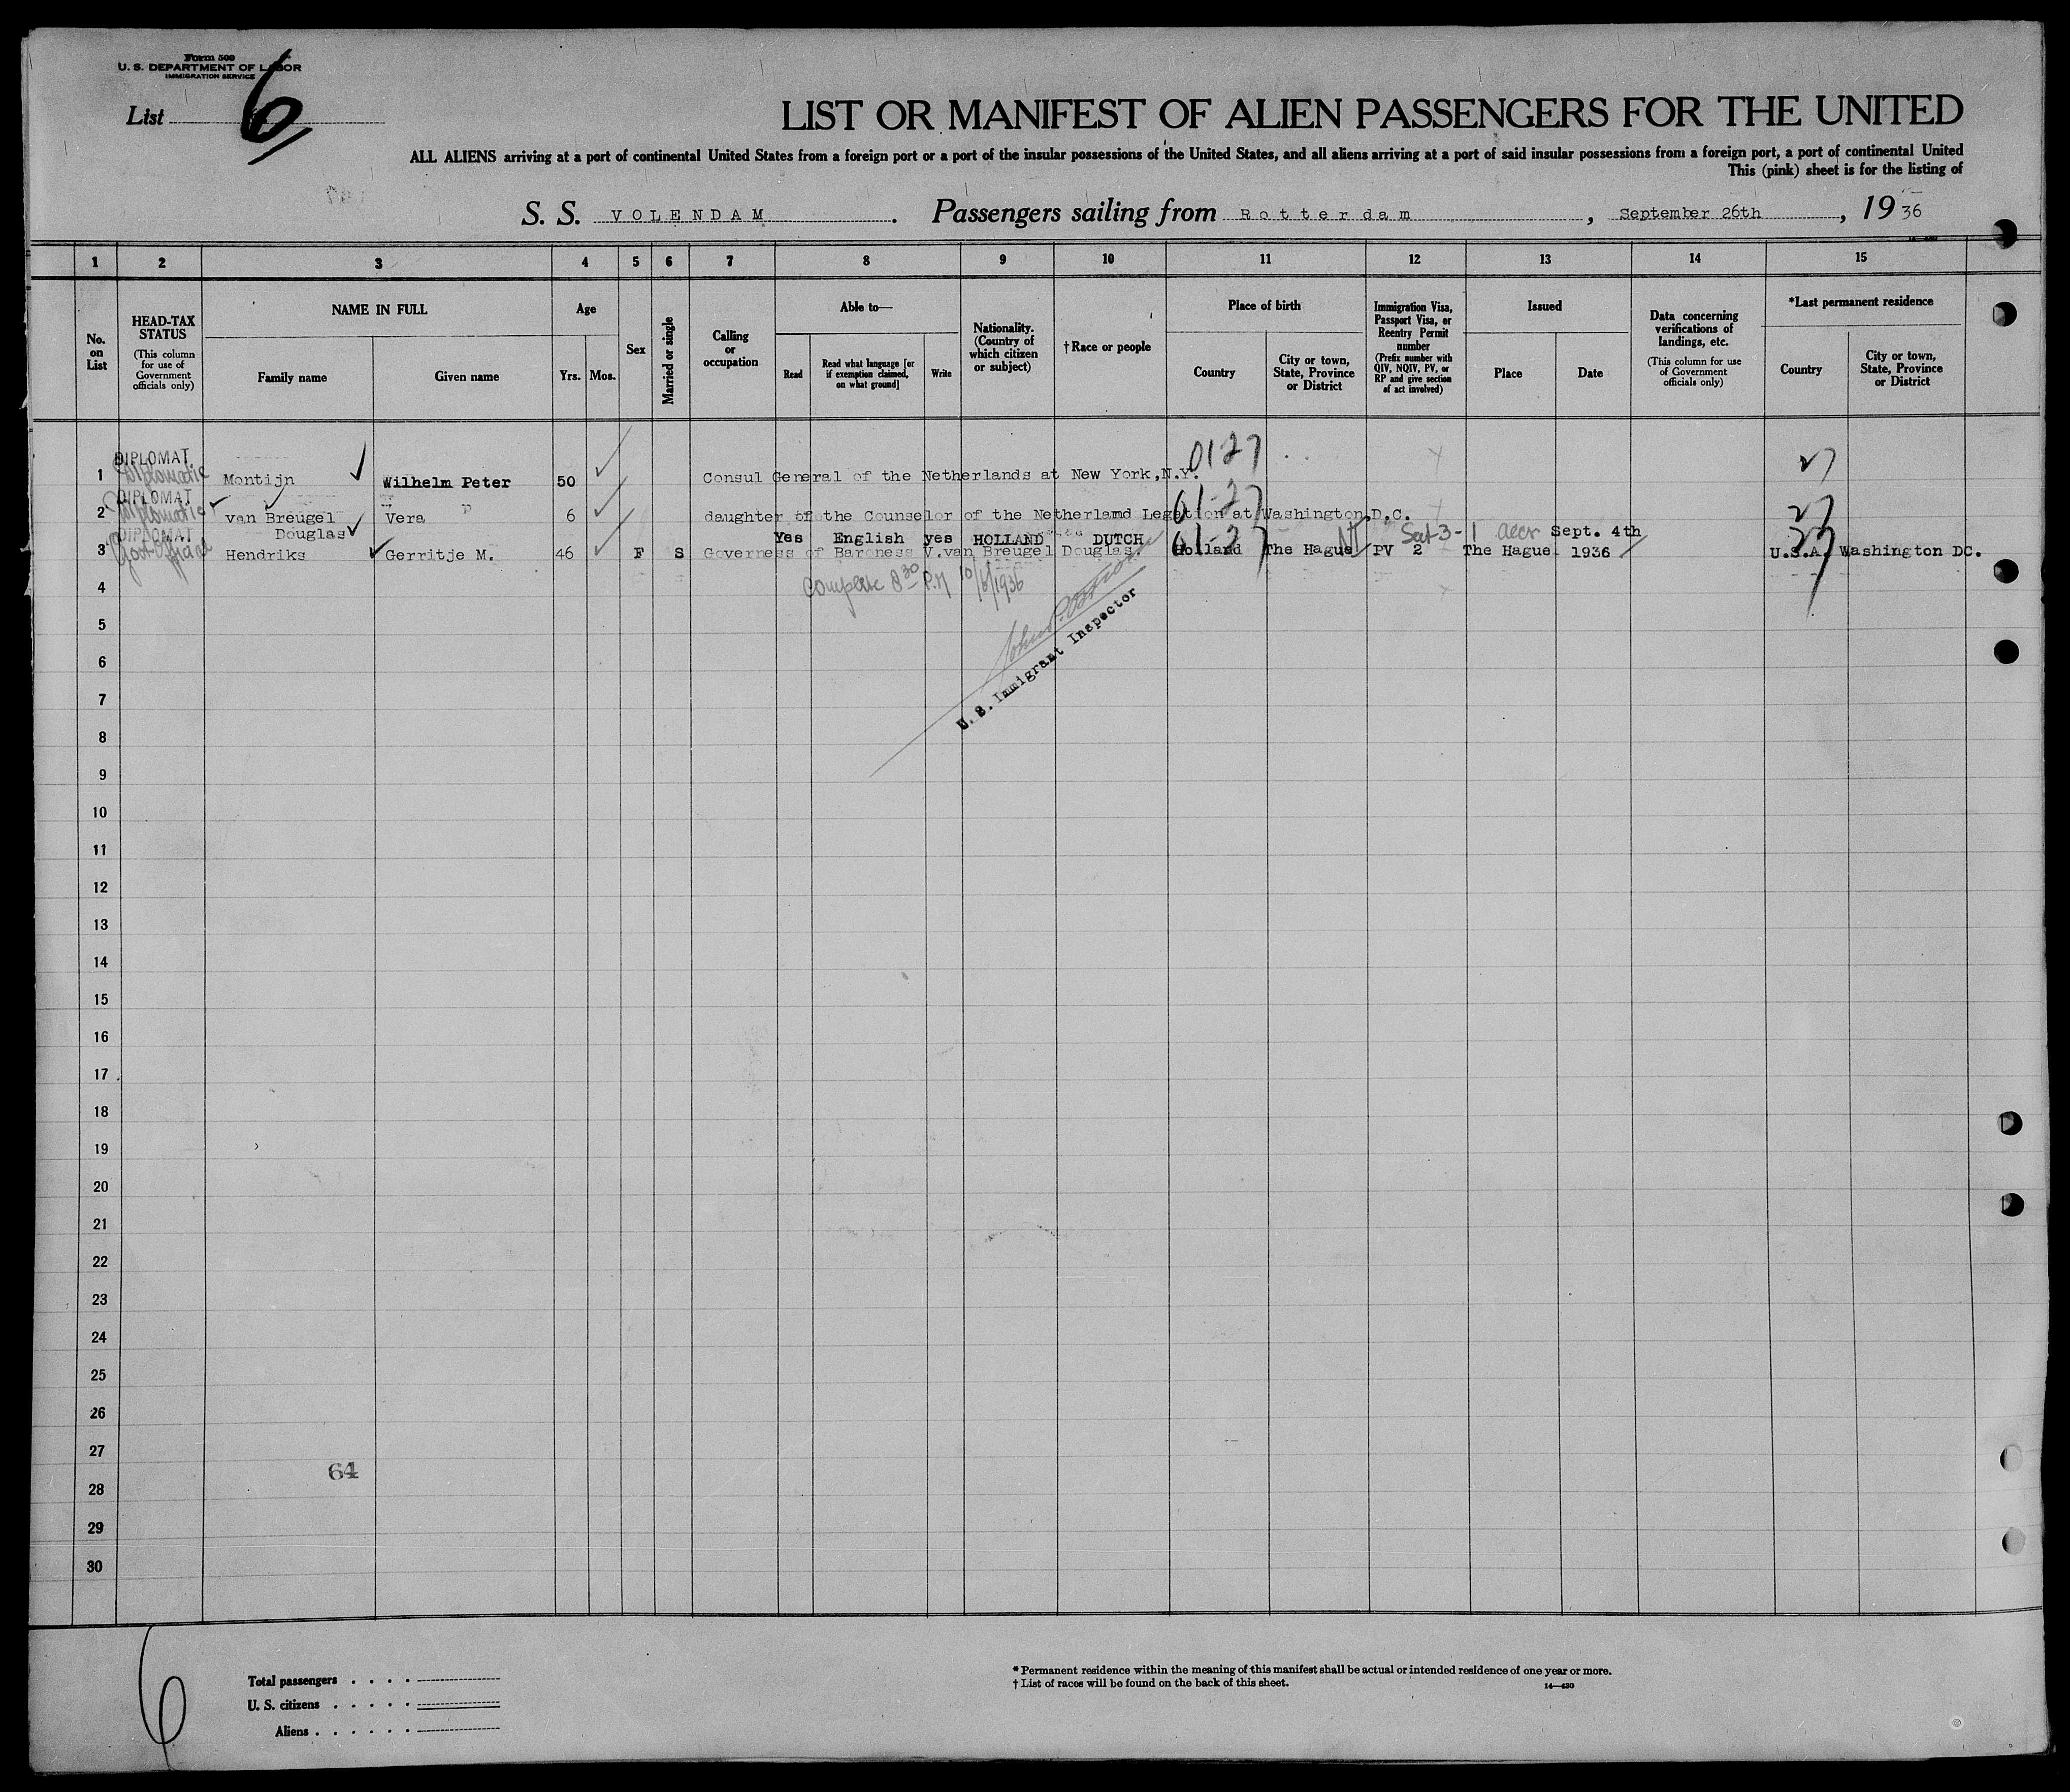 Form 500
U. S. DEPARTMENT OF LABOR
IMMIGRATION SERVICE
List 6
LIST OR MANIFEST OF ALIEN PASSENGERS FOR THE UNITED
ALL ALIENS arriving at a port of continental United States from a foreign port or a port of the insular possessions of the United States, and all aliens arriving at a port of said insular possessions from a foreign port, a port of continental United
This (pink) sheet is for the listing of
S. S. VOLENDAM. Passengers sailing from Rotterdam, September 26th, 1936
1 2 3 4 5 6 7 8 9 10 11 12 13 14 15
No. on List
HEAD-TAX STATUS
(This column for use of Government officials only)
NAME IN FULL
Family name
Given name
Age
Yrs. Mos.
Sex
Married or single
Calling or occupation
Able to—
Read
Read what language [or if exemption claimed, on what ground]
Write
Nationality. (Country of which citizen or subject)
†Race or people
Place of birth
Country
City or town, State, Province or District
Immigration Visa, Passport Visa, or Reentry Permit number
(Prefix number with QIV, NQIV, PV, or RP and give section of act involved)
Issued
Place
Date
Data concerning verifications of landings, etc.
(This column for use of Government officials only)
*Last permanent residence
Country
City or town, State, Province or District
0127
DIPLOMAT
Diplomatic
1 Montijn Wilhelm Peter 50 Consul General of the Netherlands at New York,N.Y. 27
DIPLOMAT
Diplomatic
2 van Breugel Douglas Vera 6 daughter of the Counselor of the Netherlamd Legation at Washington,D.C. 01-27 27
DIPLOMAT
Govt Official
Yes English yes HOLLAND DUTCH 01-27 Sect 3-1 Sept. 4th 27
3 Hendriks Gerritje M. 46 F S Governess of Baroness V.van Breugel Douglas. Holland The Hague PV 2 The Hague 1936 U.S.A. Washington DC.
Complete 8 30 P.M 10/6/1936
U. S. Immigrant Inspector
4
5
6
7
8
9
10
11
12
13
14
15
16
17
18
19
20
21
22
23
24
25
26
27
64
28
29
30
6
Total passengers
U. S. citizens
Aliens
* Permanent residence within the meaning of this manifest shall be actual or intended residence of one year or more.
† List of races will be found on the back of this sheet.
14—430